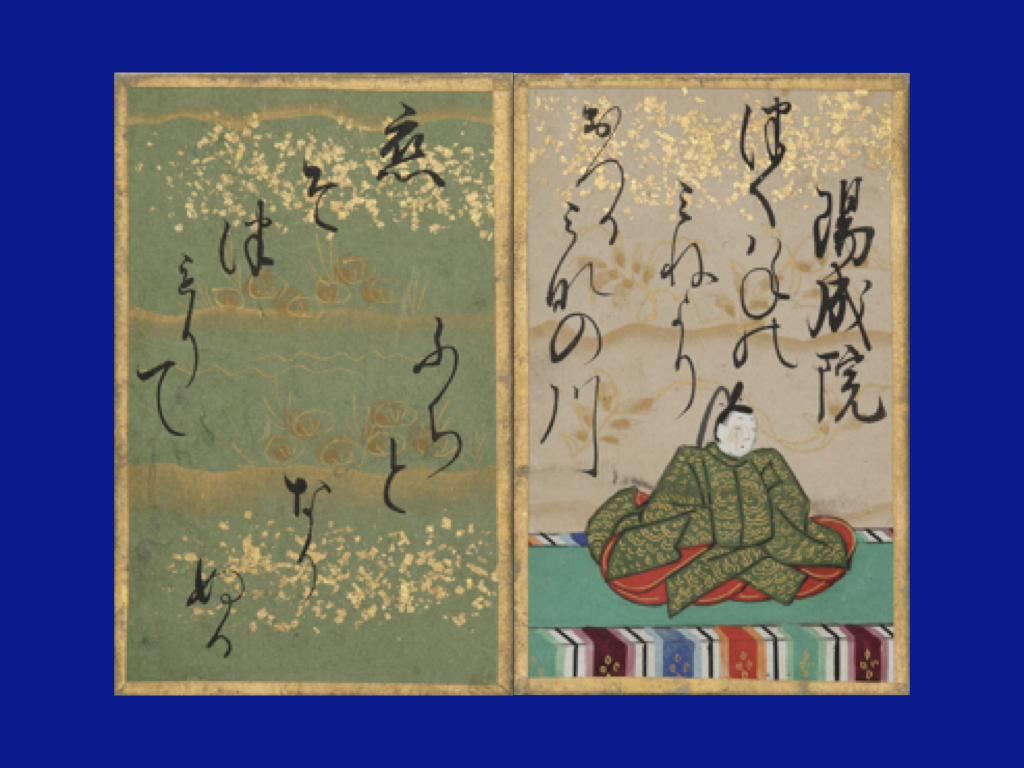 陽成院
津くはねの
みねより
おつるみなの川
恋そ津もりて
ふちとなりぬる